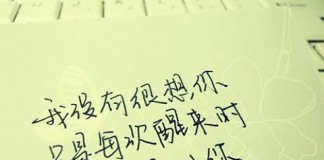 我没有很想你
只是每次醒来时
你